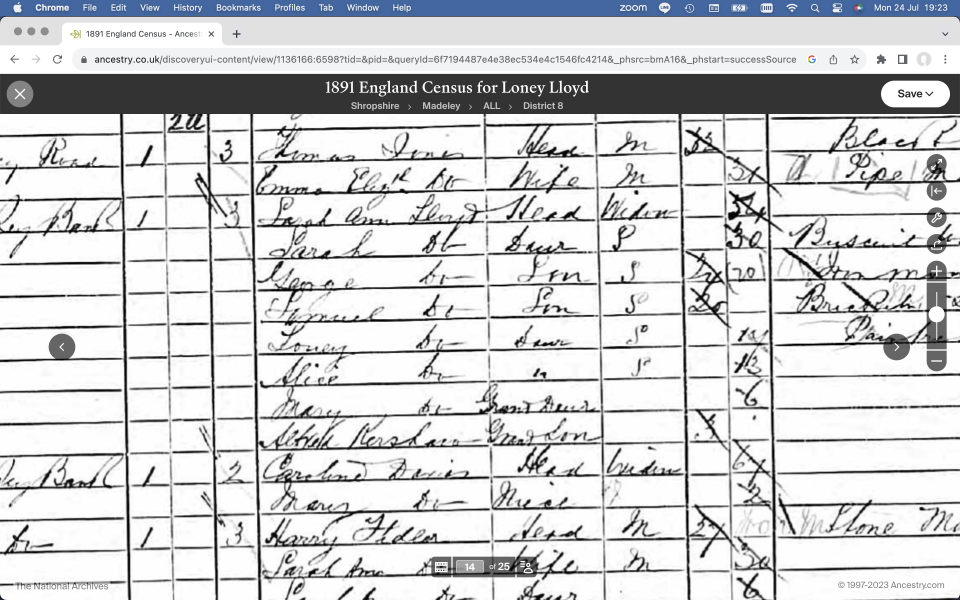 Chrome File Edit View History Bookmarks Profiles Tab Window Help zoom Mon 24 Jul 19:23
1891 England Census - Ancest
ancestry.co.uk/discoveryui-content/view/1136166:6598?tid=&pid=&queryId=6f7194487e4e38ec534e4c1546fc4214&_phsrc=bmA16&_phstart=successSource
1891 England Census for Loney Lloyd
Shropshire > Madeley > ALL > District 8
Save
Road 1 3 Thomas Head M Black
Emma Elizth Do Wife M Pipe
Bank 1 3 Sarah Ann Lloyd Head Widow
Sarah Do Daur S 30
George Do Son S 20
Samuel Do Son S 20
Loney Do Daur S
Alice Do " S 13
Mary Do Grand Daur 6
Alfred Kershaw Grand Son 3
Bank 1 2 Caroline Davies Head Widow
Mary Do Niece
Do 1 3 Harry Fidler Head M 27 Stone
Sarah Ann Do Wife M 30
Daur 6
14 of 25
The National Archives
© 1997-2023 Ancestry.com